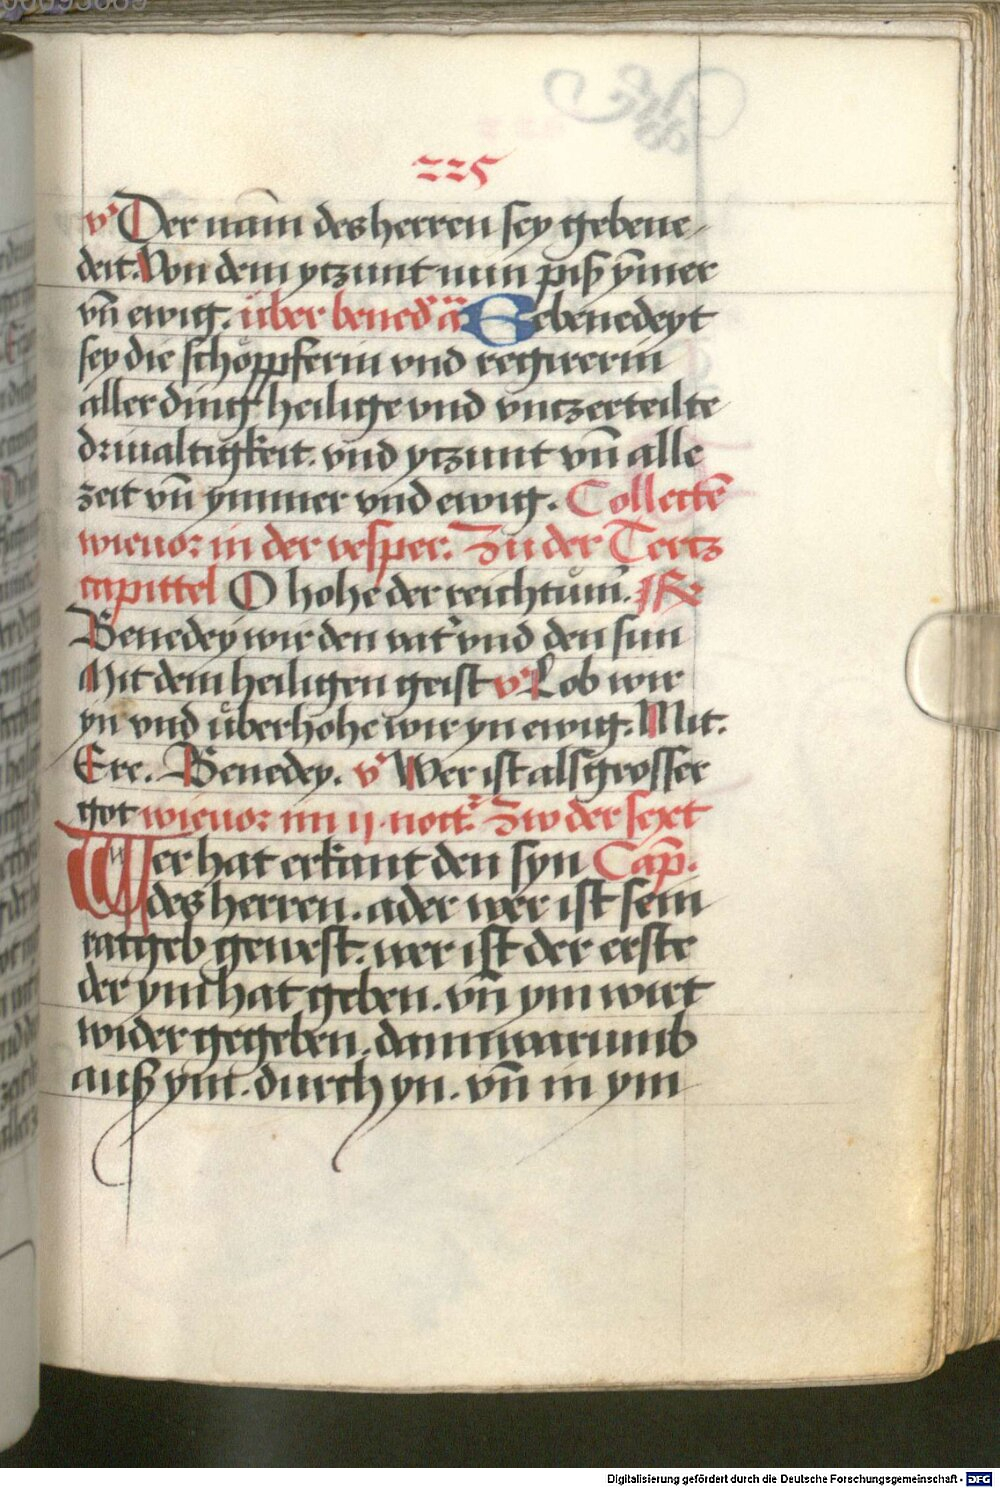 225
v Der nam̄ des herren sey gebene-
deit. Von dem ytzunt nun piß ym̄er
vn̄ ewig. über bened̄ Gebenedeyt
sey die schöppferin vnd regirerin
aller ding heilige vnd vntzerteilte
driualtigkeit. vnd ytzunt vn̄ alle
zeit vn̄ ymmer vnd ewig. Collectē
wieuor in der vesper. Zu der Tertz
capittel O hohe der reichtum̄. R
Benedey wir den vat' vnd den sun
Mit dem heiligen geist v Lob wir
yn vnd überhohe wir yn ewig. Mit.
Ere. Benedey. v Wer ist als grosser
got wieuor im ij. noct. Zw der sext
Wer hat erkant den syn Cap̄.
des herren. ader wer ist sein
ratgeb gewest. wer ist der erste
der ym hat geben. vn̄ ym wirt
wider gegeben. dann warumb
auß ym. durch yn. vn̄ in ym
Digitalisierung gefördert durch die Deutsche Forschungsgemeinschaft - DFG